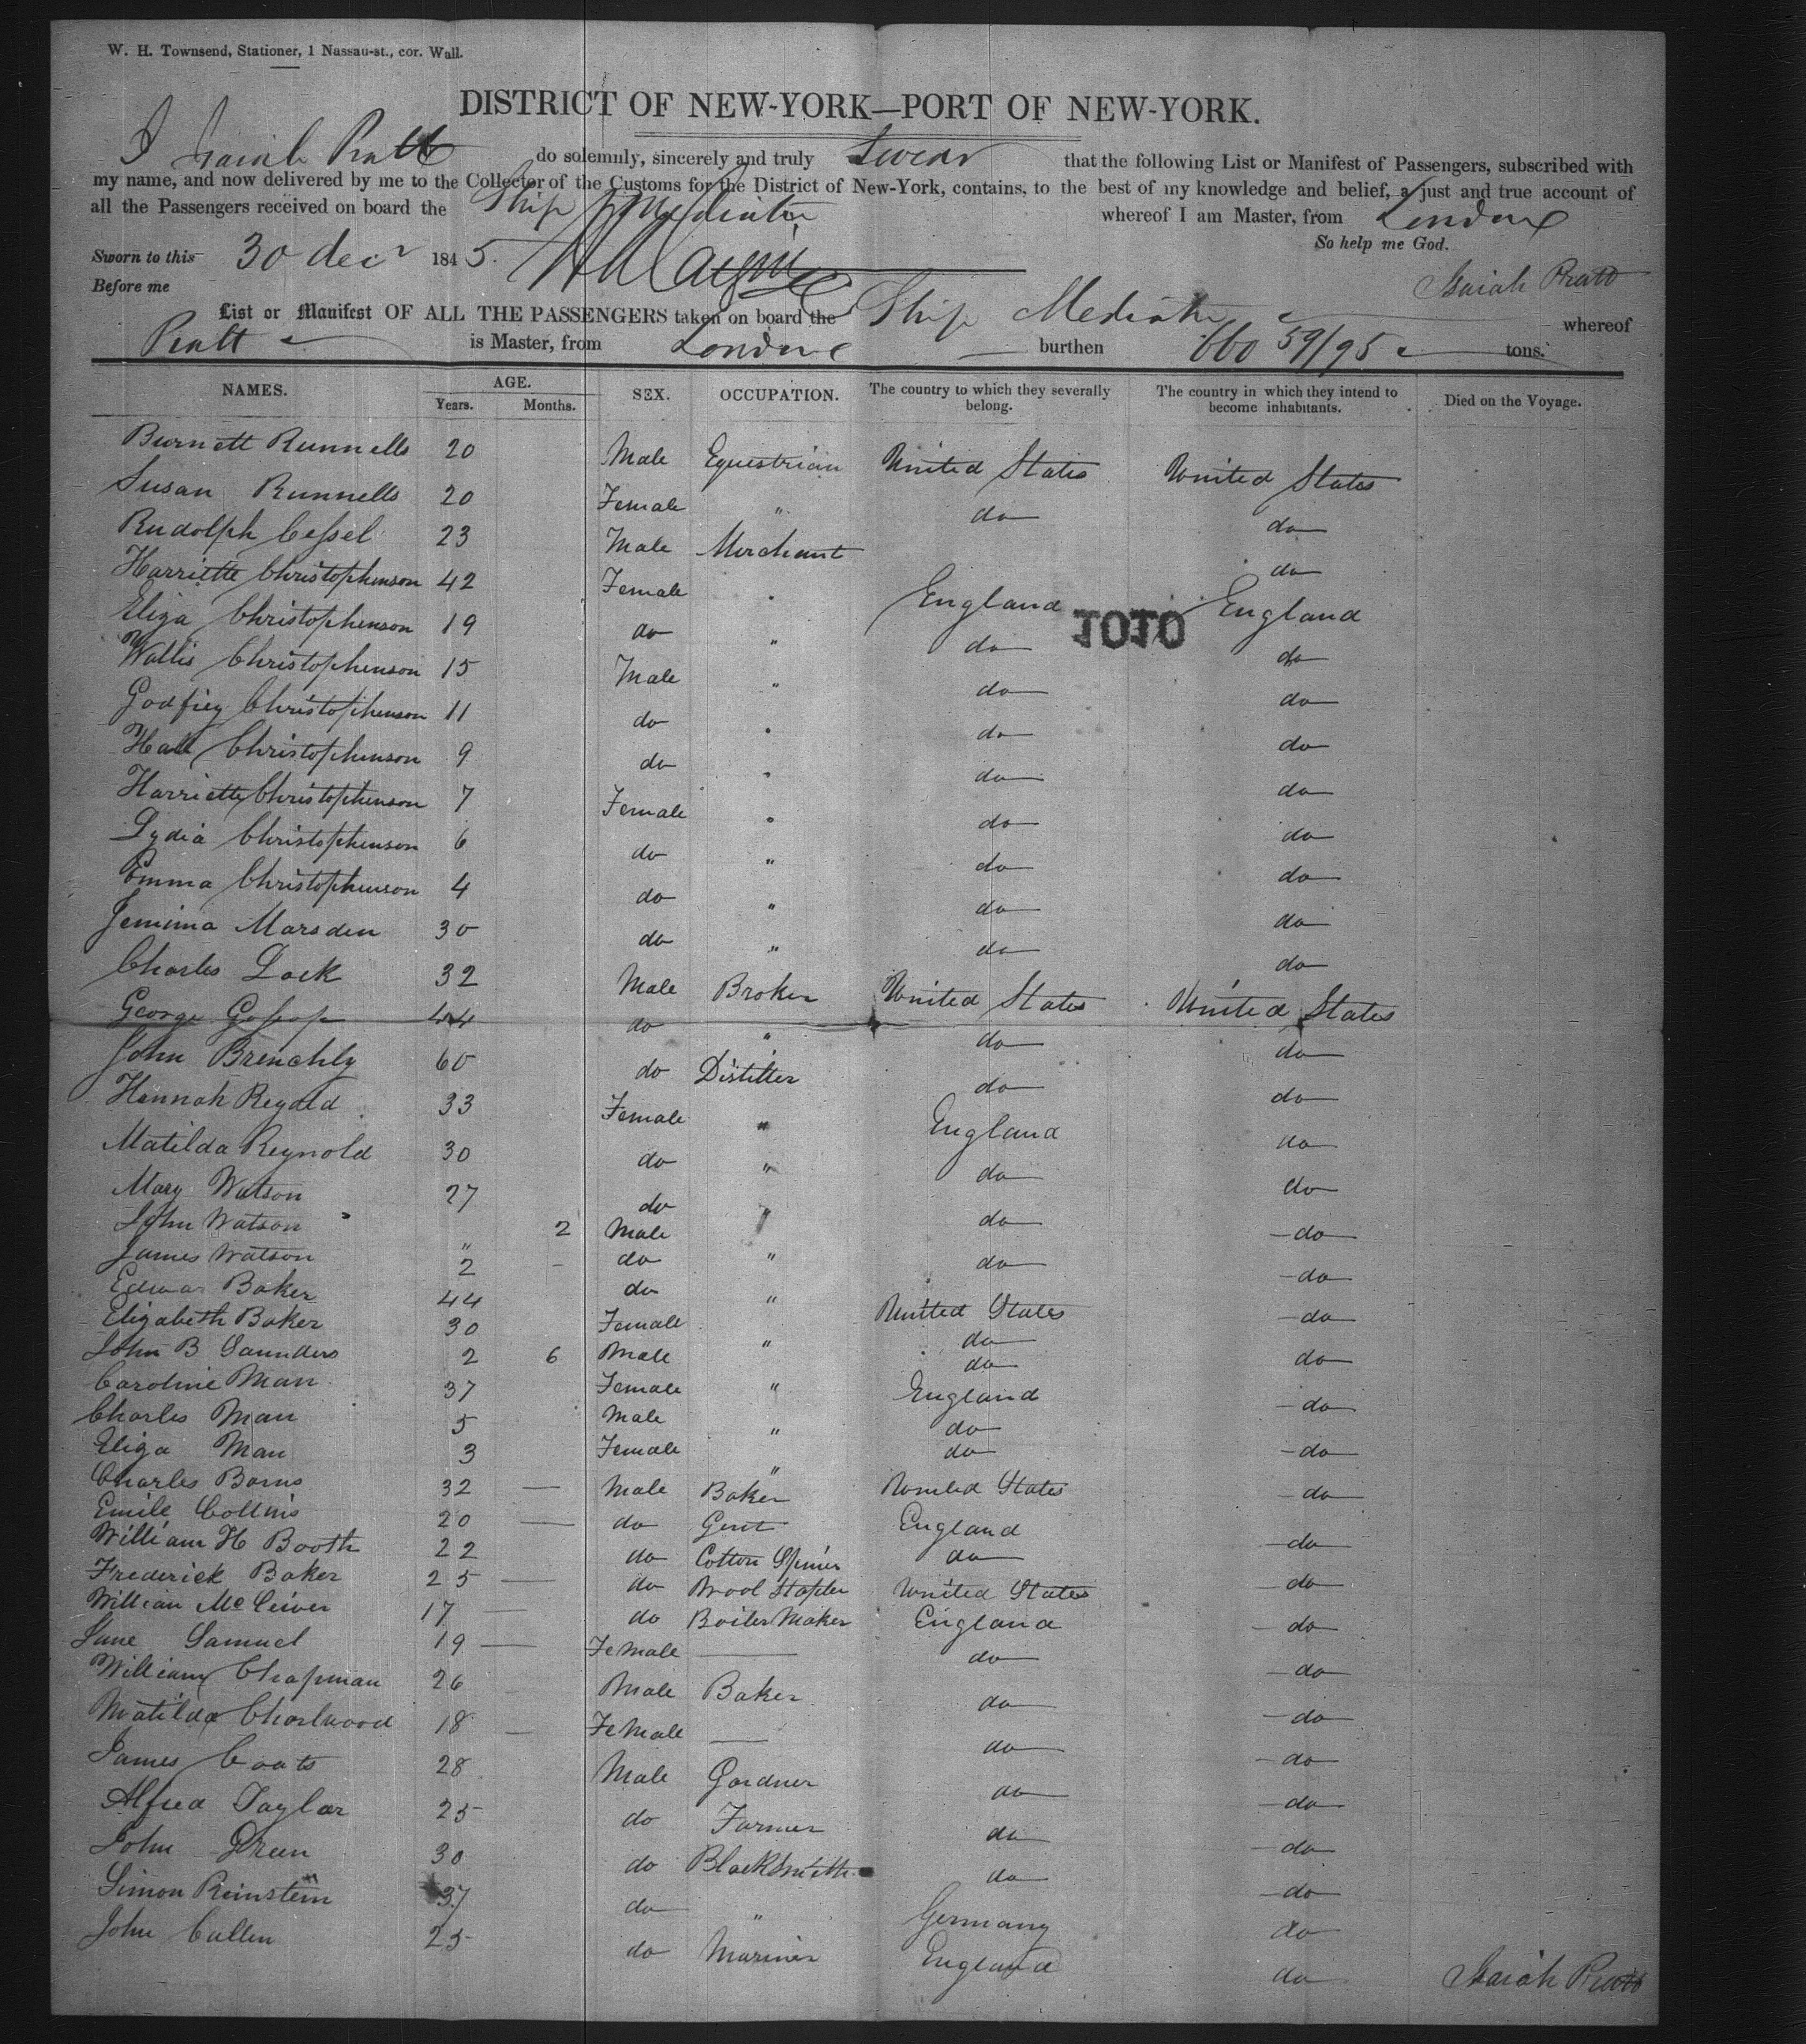 W. H. Townsend, Stationer, 1 Nassau-st., cor. Wall.
DISTRICT OF NEW-YORK—PORT OF NEW-YORK.
I Isaiah Pratt do solemnly, sincerely and truly Swear that the following List or Manifest of Passengers, subscribed with
my name, and now delivered by me to the Collector of the Customs for the District of New-York, contains, to the best of my knowledge and belief, a just and true account of
all the Passengers received on board the Ship Mediator whereof I am Master, from London
So help me God.
Sworn to this 30 decr 1845.
Before me Isaiah Pratt
List or Manifest OF ALL THE PASSENGERS taken on board the Ship Mediator whereof
Pratt is Master, from London burthen 660 59/95 tons.
NAMES. AGE. SEX. OCCUPATION. The country to which they severally belong. The country in which they intend to become inhabitants. Died on the Voyage.
Years. Months.
Burnett Runnells 20 Male Equestrian United States United States
Susan Runnells 20 Female " do do
Rudolph Cessel 23 Male Merchant do
Harriette Christophenson 42 Female " England England
1010
Eliza Christophenson 19 do " do do
Wallis Christophenson 15 Male " do do
Godfrey Christophenson 11 do " do do
Hall Christophenson 9 do " do do
Harriette Christophenson 7 Female " do do
Lydia Christophenson 6 do " do do
Emma Christophenson 4 do " do do
Jemima Marsden 30 do " do do
Charles Lock 32 Male Broker United States United States
George Gossop 44 do " do do
John Brenchly 60 do Distiller do do
Hannah 33 Female " England do
Matilda Reynold 30 do " do do
Mary Watson 27 do " do do
John Watson " 2 Male " do do
James Watson 2 - do
Edwar Baker 44 do " United States do
Elizabeth Baker 30 Female " do do
John B Saunders 2 6 Male do
Caroline Man 37 Female " England do
Charles Man 5 Male " do do
Eliza Man 3 Female " do
Charles Barns 32 — Male Baker United States do
Emile Collins 20 — do Gent England do
William H Booth 22 do Cotton Spiner do do
Frederick Baker 25 — do Wool Stapler United States do
William McCeiver 17 — do Boiler Maker England
Jane Samuel 19 — Female — do do
William Chapman 26 Male Baker do do
Matilda Charlwood 18 — Female — do do
James Coats 28 Male Gardner do do
Alfred Taylor 25 do Farmer do do
John Green 30 do Blacksmith do do
Simon Reinstein 37 do " Germany do
John Cullen 25 do Mariner England do
Isaiah Pratt